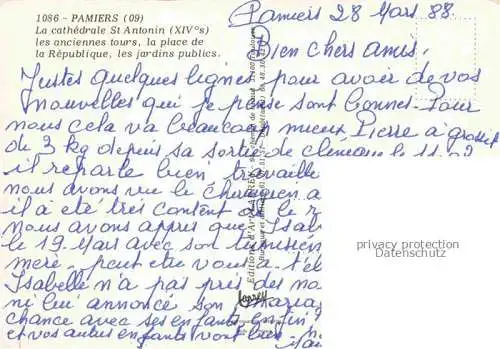 1086 - PAMIERS (09)
La cathédrale St Antonin (XIV°s)
les anciennes tours, la place de
la République, les jardins publics.
Pamiers 28 Mars 88.
Bien chers amis,
Justes quelques lignes pour avoir de vos
nouvelles qui je pense sont bonnes. Pour
nous cela va beaucoup mieux Pierre a grossit
de 3 kg depuis sa sortie de
il reparle bien, travaille
nous avons vue le chirurgien a
il a été très content
nous avons appris que Isabe
le 19 Mars avec son tunisien
mère, peut être vous a t'él
Isabelle n'a pas pris des no
ni lui annoncé son maria
chance avec ses enfants enfin
et vos autres enfants vont bien
privacy protection
Datenschutz